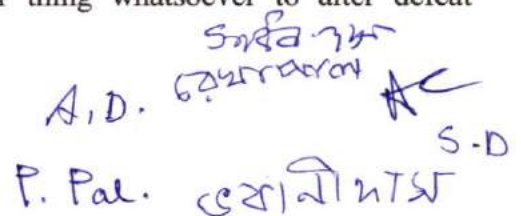 thing whatsoever to alter defeat
A.D. রেখা পাল AC
S.D
P. Pal. ভবানী দাস